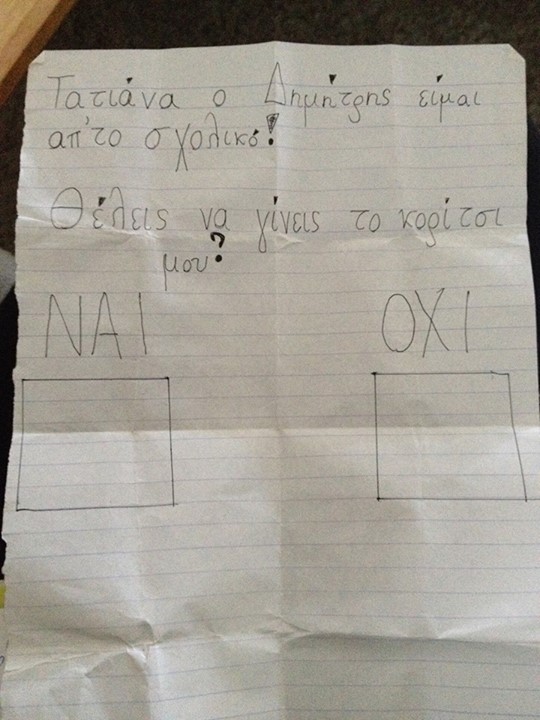 Τατιάνα ο Δημήτρης είμαι
απ'το σχολικό!
Θέλεις να γίνεις το κορίτσι
μου?
ΝΑΙ ΟΧΙ